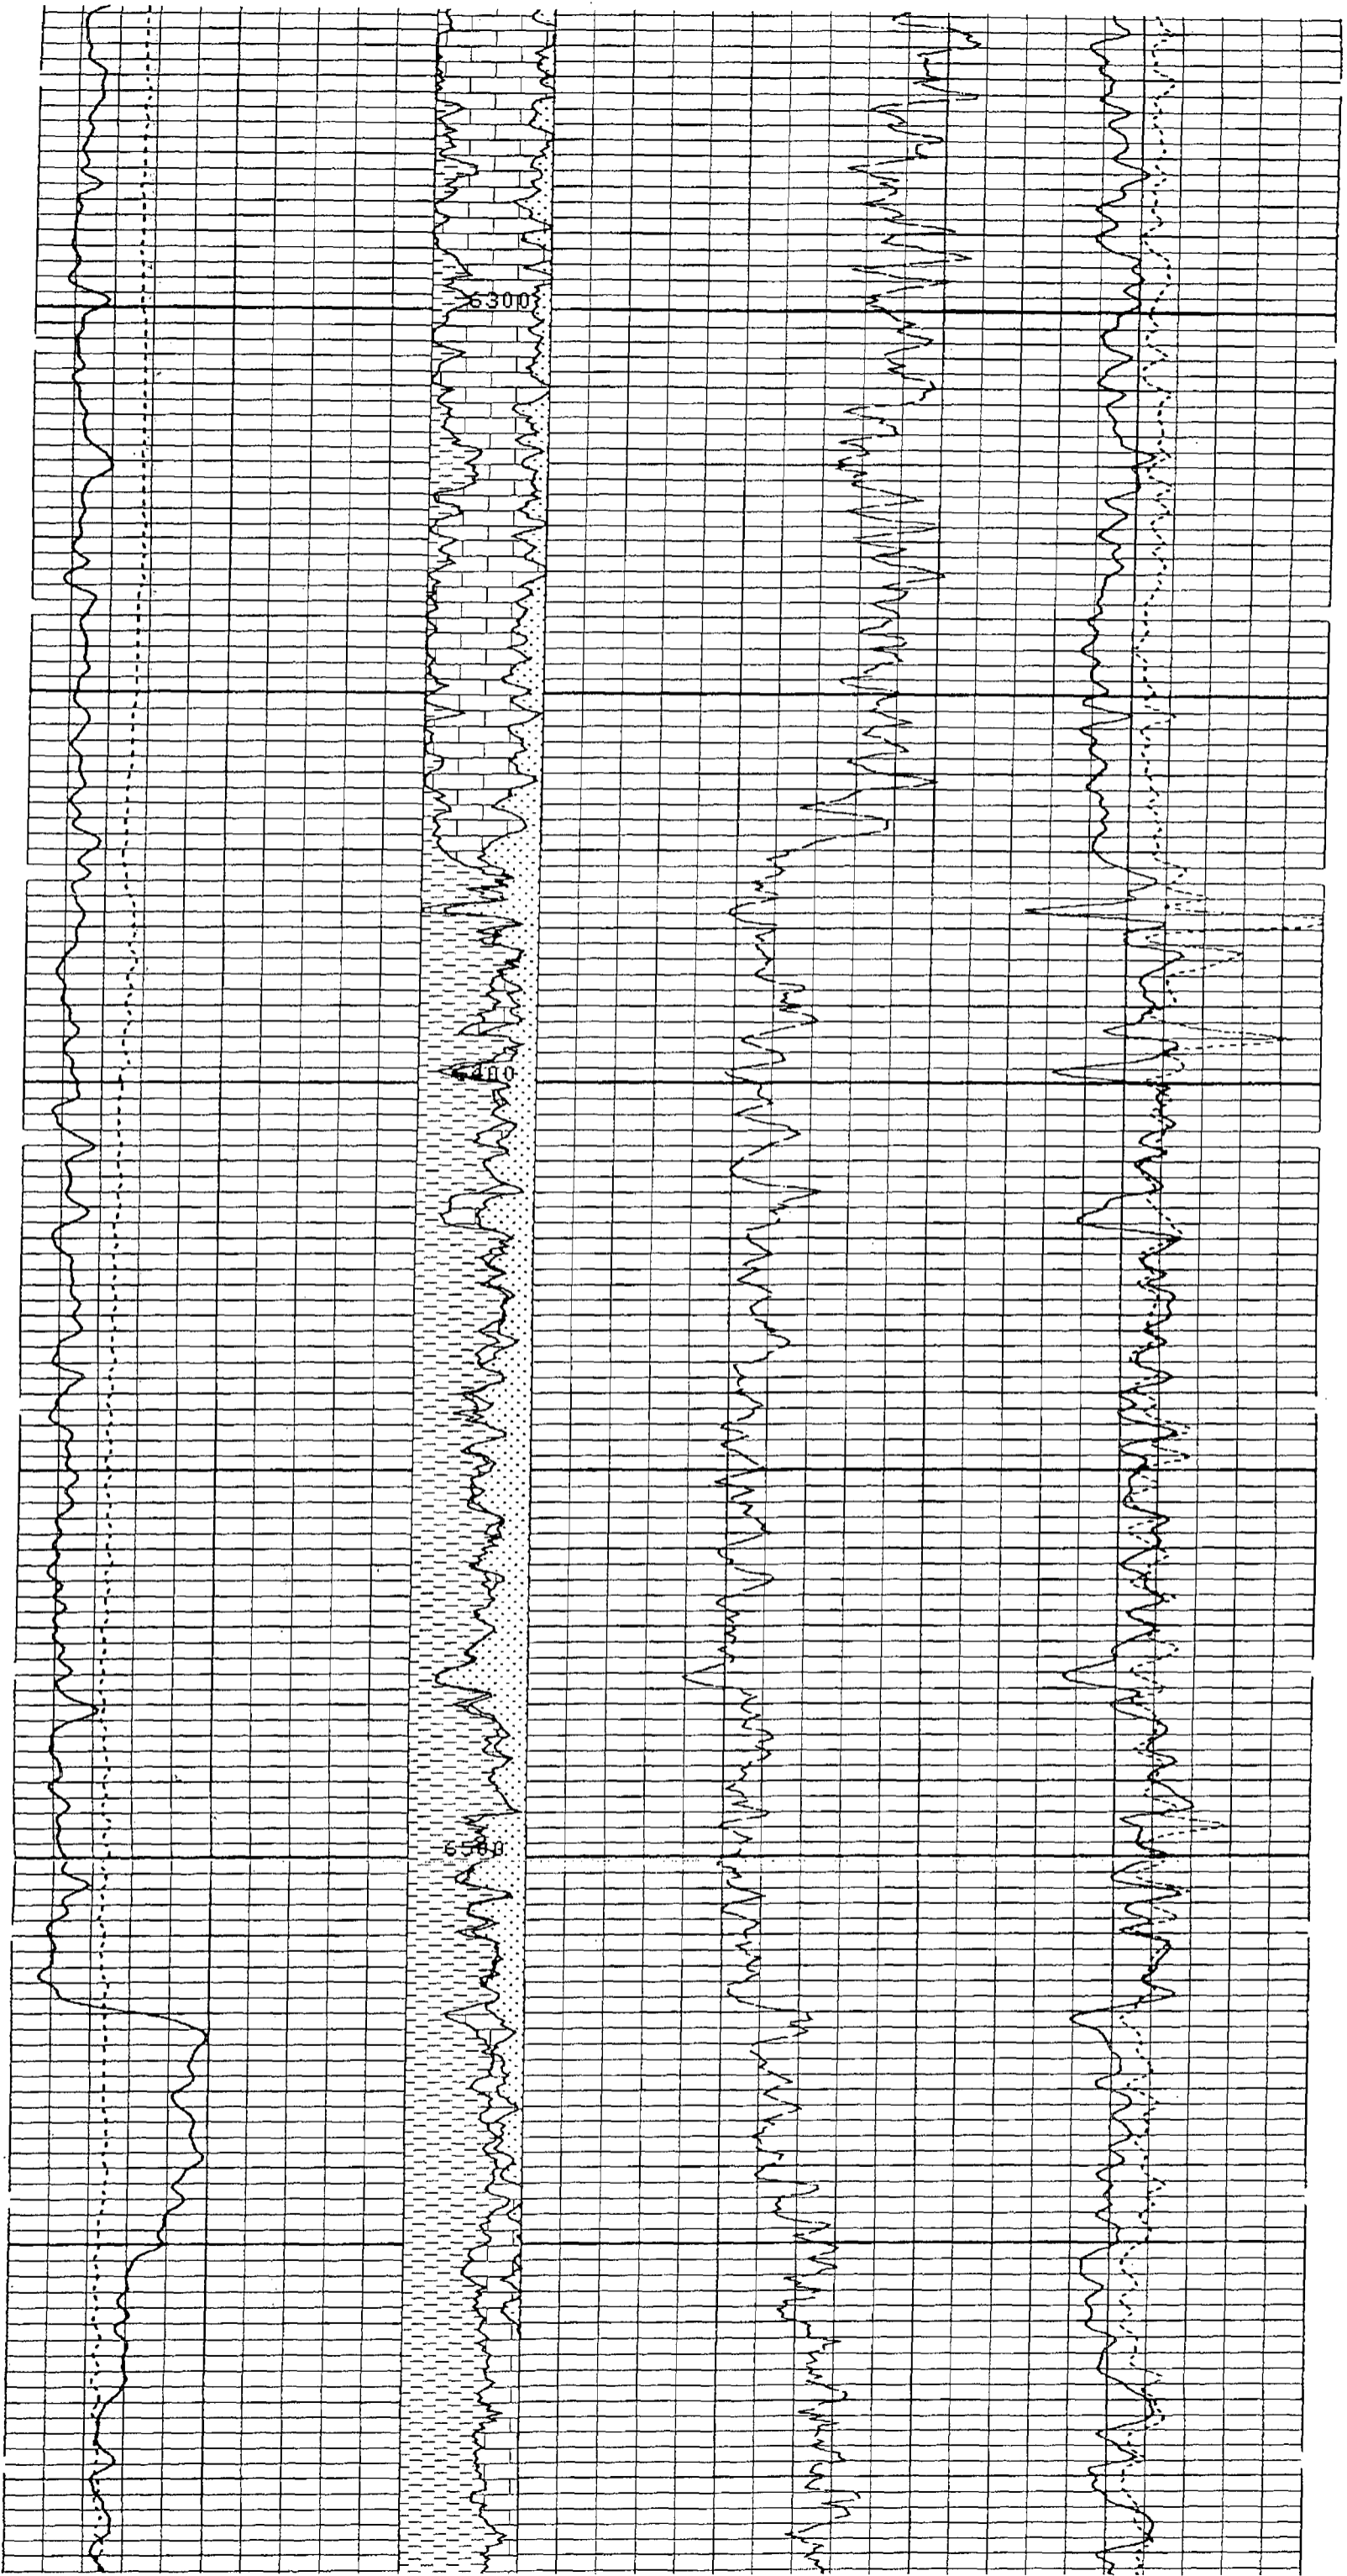 6300
6400
6500